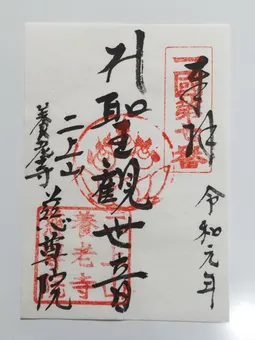 奉拝
令和元年
聖觀世音
二上山
養老寺
慈尊院
養老寺